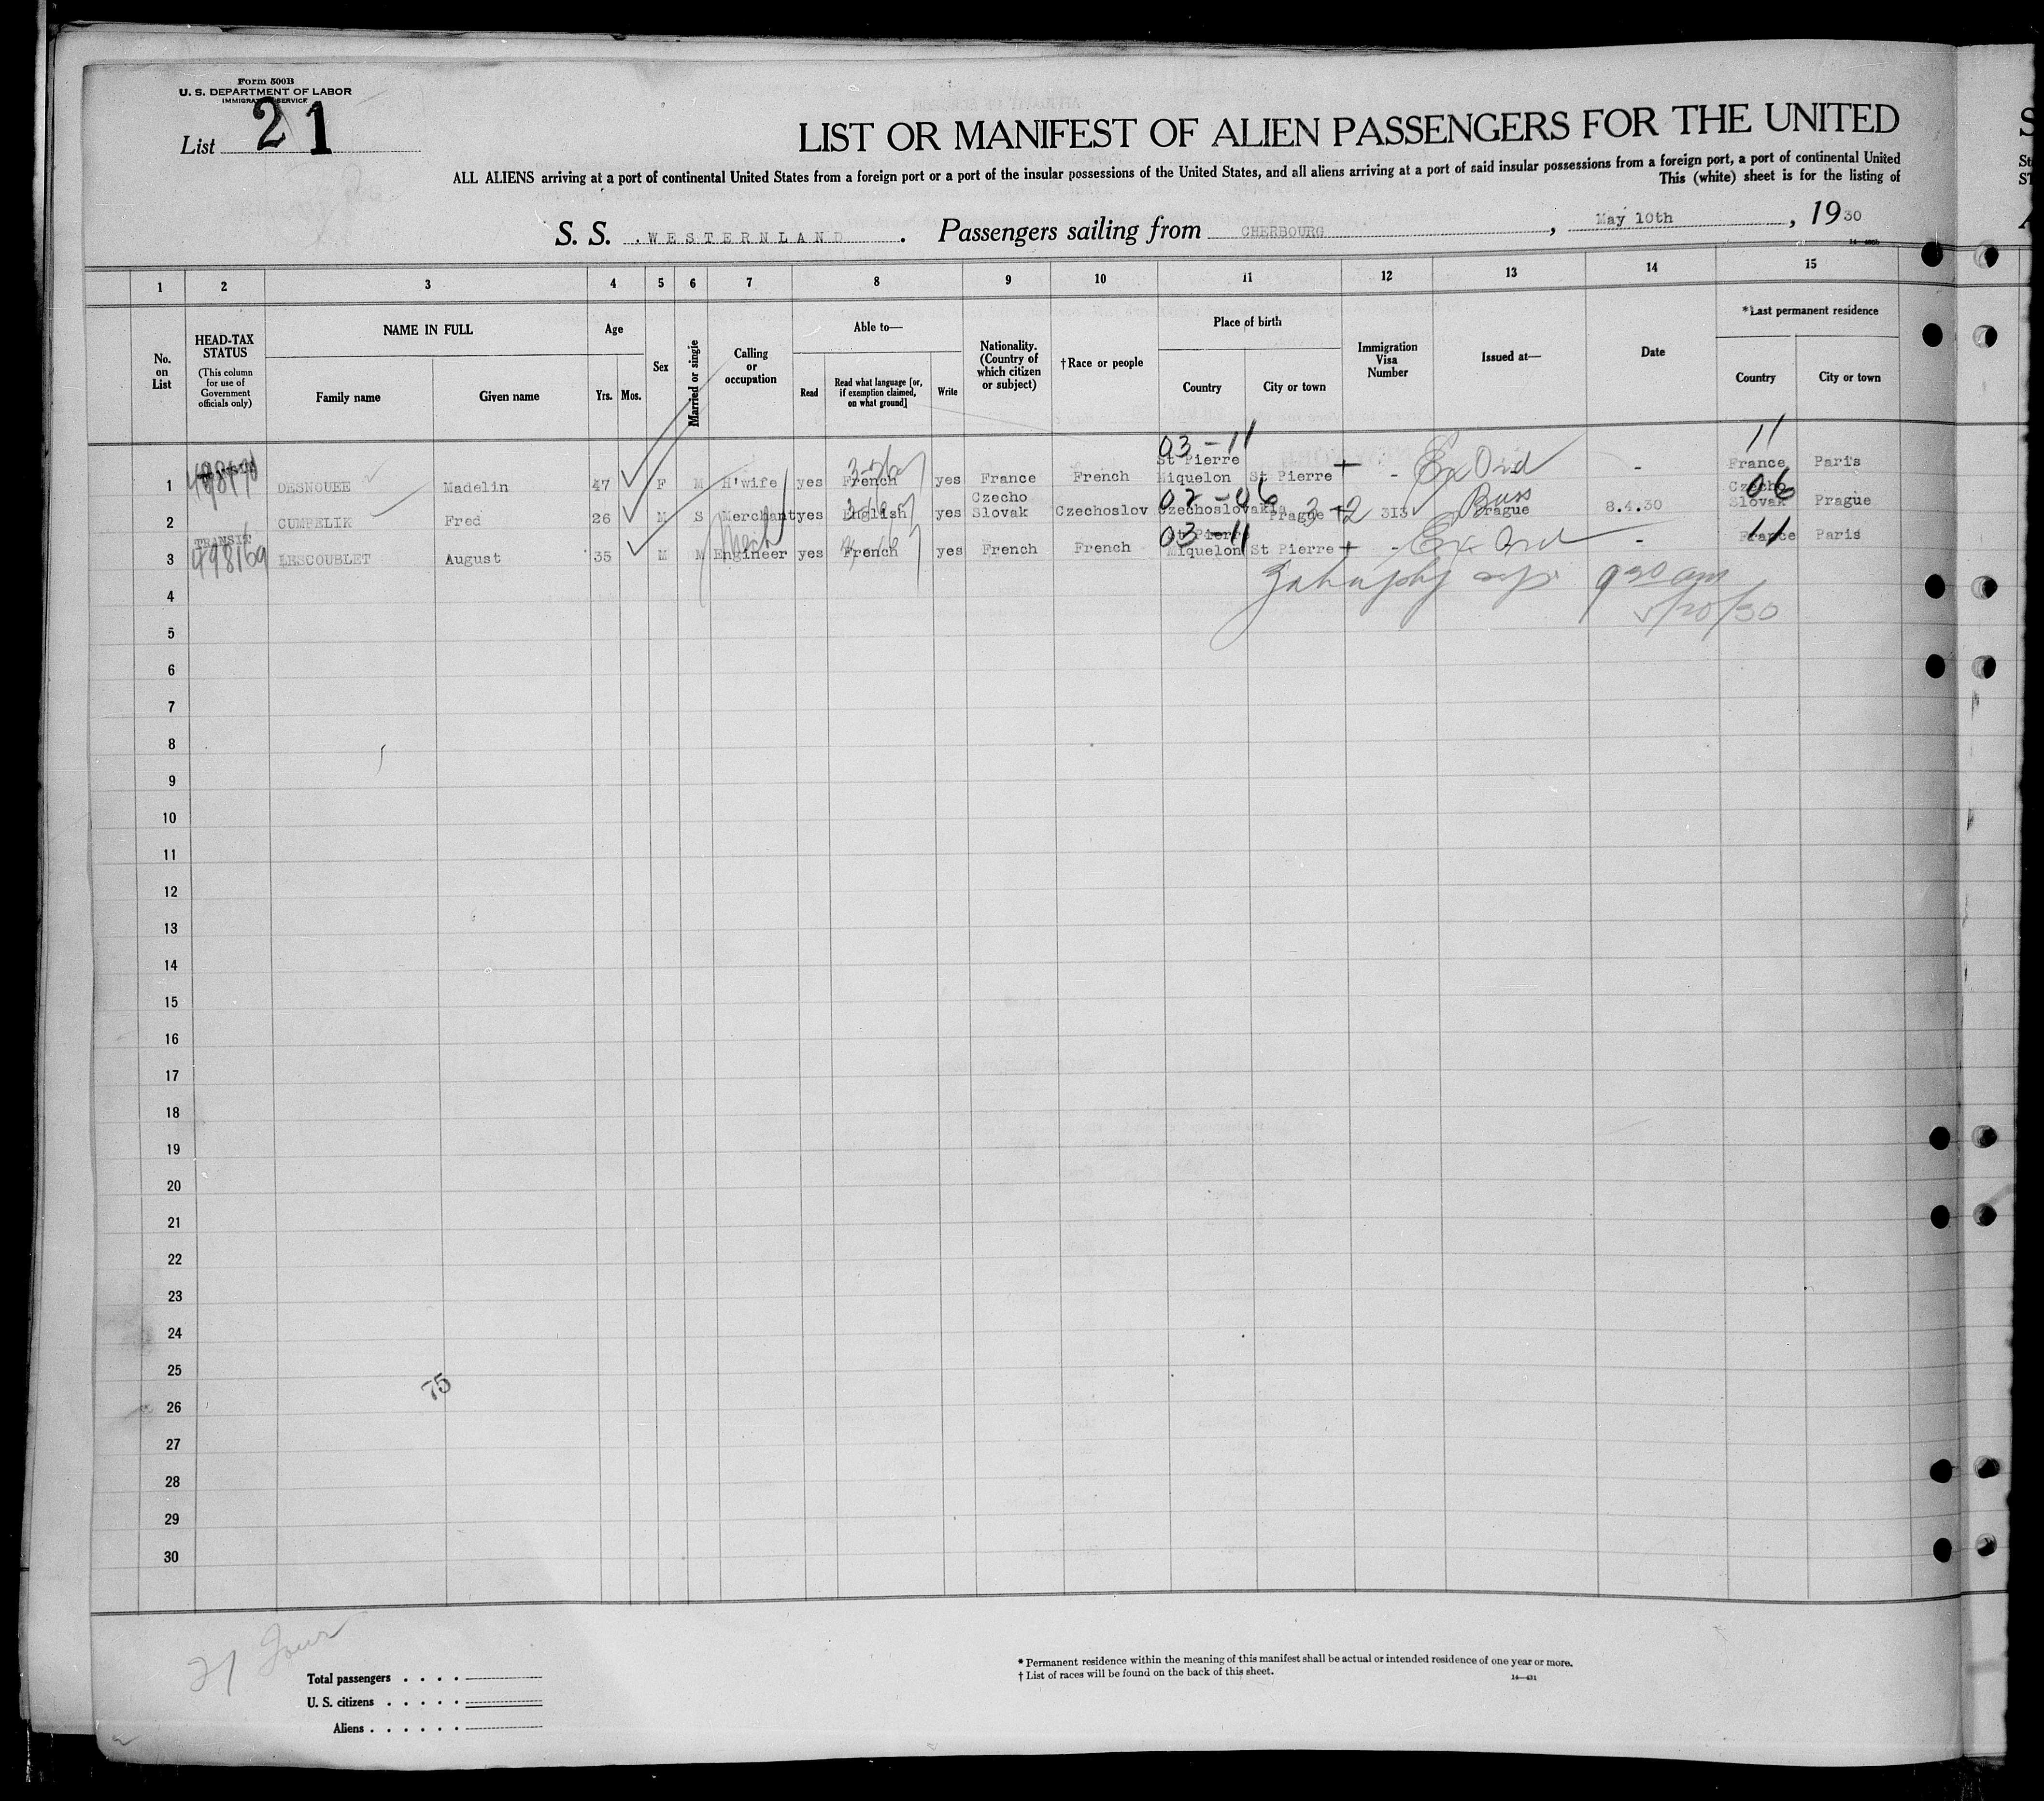 Form 500B
U. S. DEPARTMENT OF LABOR
IMMIGRATION SERVICE
List 21
LIST OR MANIFEST OF ALIEN PASSENGERS FOR THE UNITED
ALL ALIENS arriving at a port of continental United States from a foreign port or a port of the insular possessions of the United States, and all aliens arriving at a port of said insular possessions from a foreign port, a port of continental United
This (white) sheet is for the listing of
S. S. WESTERNLAND. Passengers sailing from CHERBOURG, May 10th, 1930
1 2 3 4 5 6 7 8 9 10 11 12 13 14 15
No. on List
HEAD-TAX STATUS (This column for use of Government officials only)
NAME IN FULL
Family name Given name
Age
Yrs. Mos.
Sex
Married or single
Calling or occupation
Able to—
Read
Read what language [or, if exemption claimed, on what ground]
Write
Nationality. (Country of which citizen or subject)
†Race or people
Place of birth
Country City or town
Immigration Visa Number
Issued at—
Date
*Last permanent residence
Country City or town
03-11 11
1 TRANSIT DESNOUEE Madelin 47 F M H'wife yes French yes France French St Pierre Miquelon St Pierre - Ex Ord - France Paris
2 CUMPELIK Fred 26 M S Merchant yes English yes Czecho Slovak Czechoslov Czechoslovakia 02-06 Prague 3 2 313 Prague 8.4.30 Czecho Slovak 06 Prague
3 TRANSIT 498169 LESCOUBLET August 35 M M Mech Engineer yes French yes French French 03-11 St Pierre Miquelon St Pierre - Ex Ord - France 11 Paris
4 9 30 am
5 5/20/30
6
7
8
9
10
11
12
13
14
15
16
17
18
19
20
21
22
23
24
25
75
26
27
28
29
30
21
Total passengers . . . .
U. S. citizens . . . . .
Aliens . . . . . .
* Permanent residence within the meaning of this manifest shall be actual or intended residence of one year or more.
† List of races will be found on the back of this sheet.
14—431